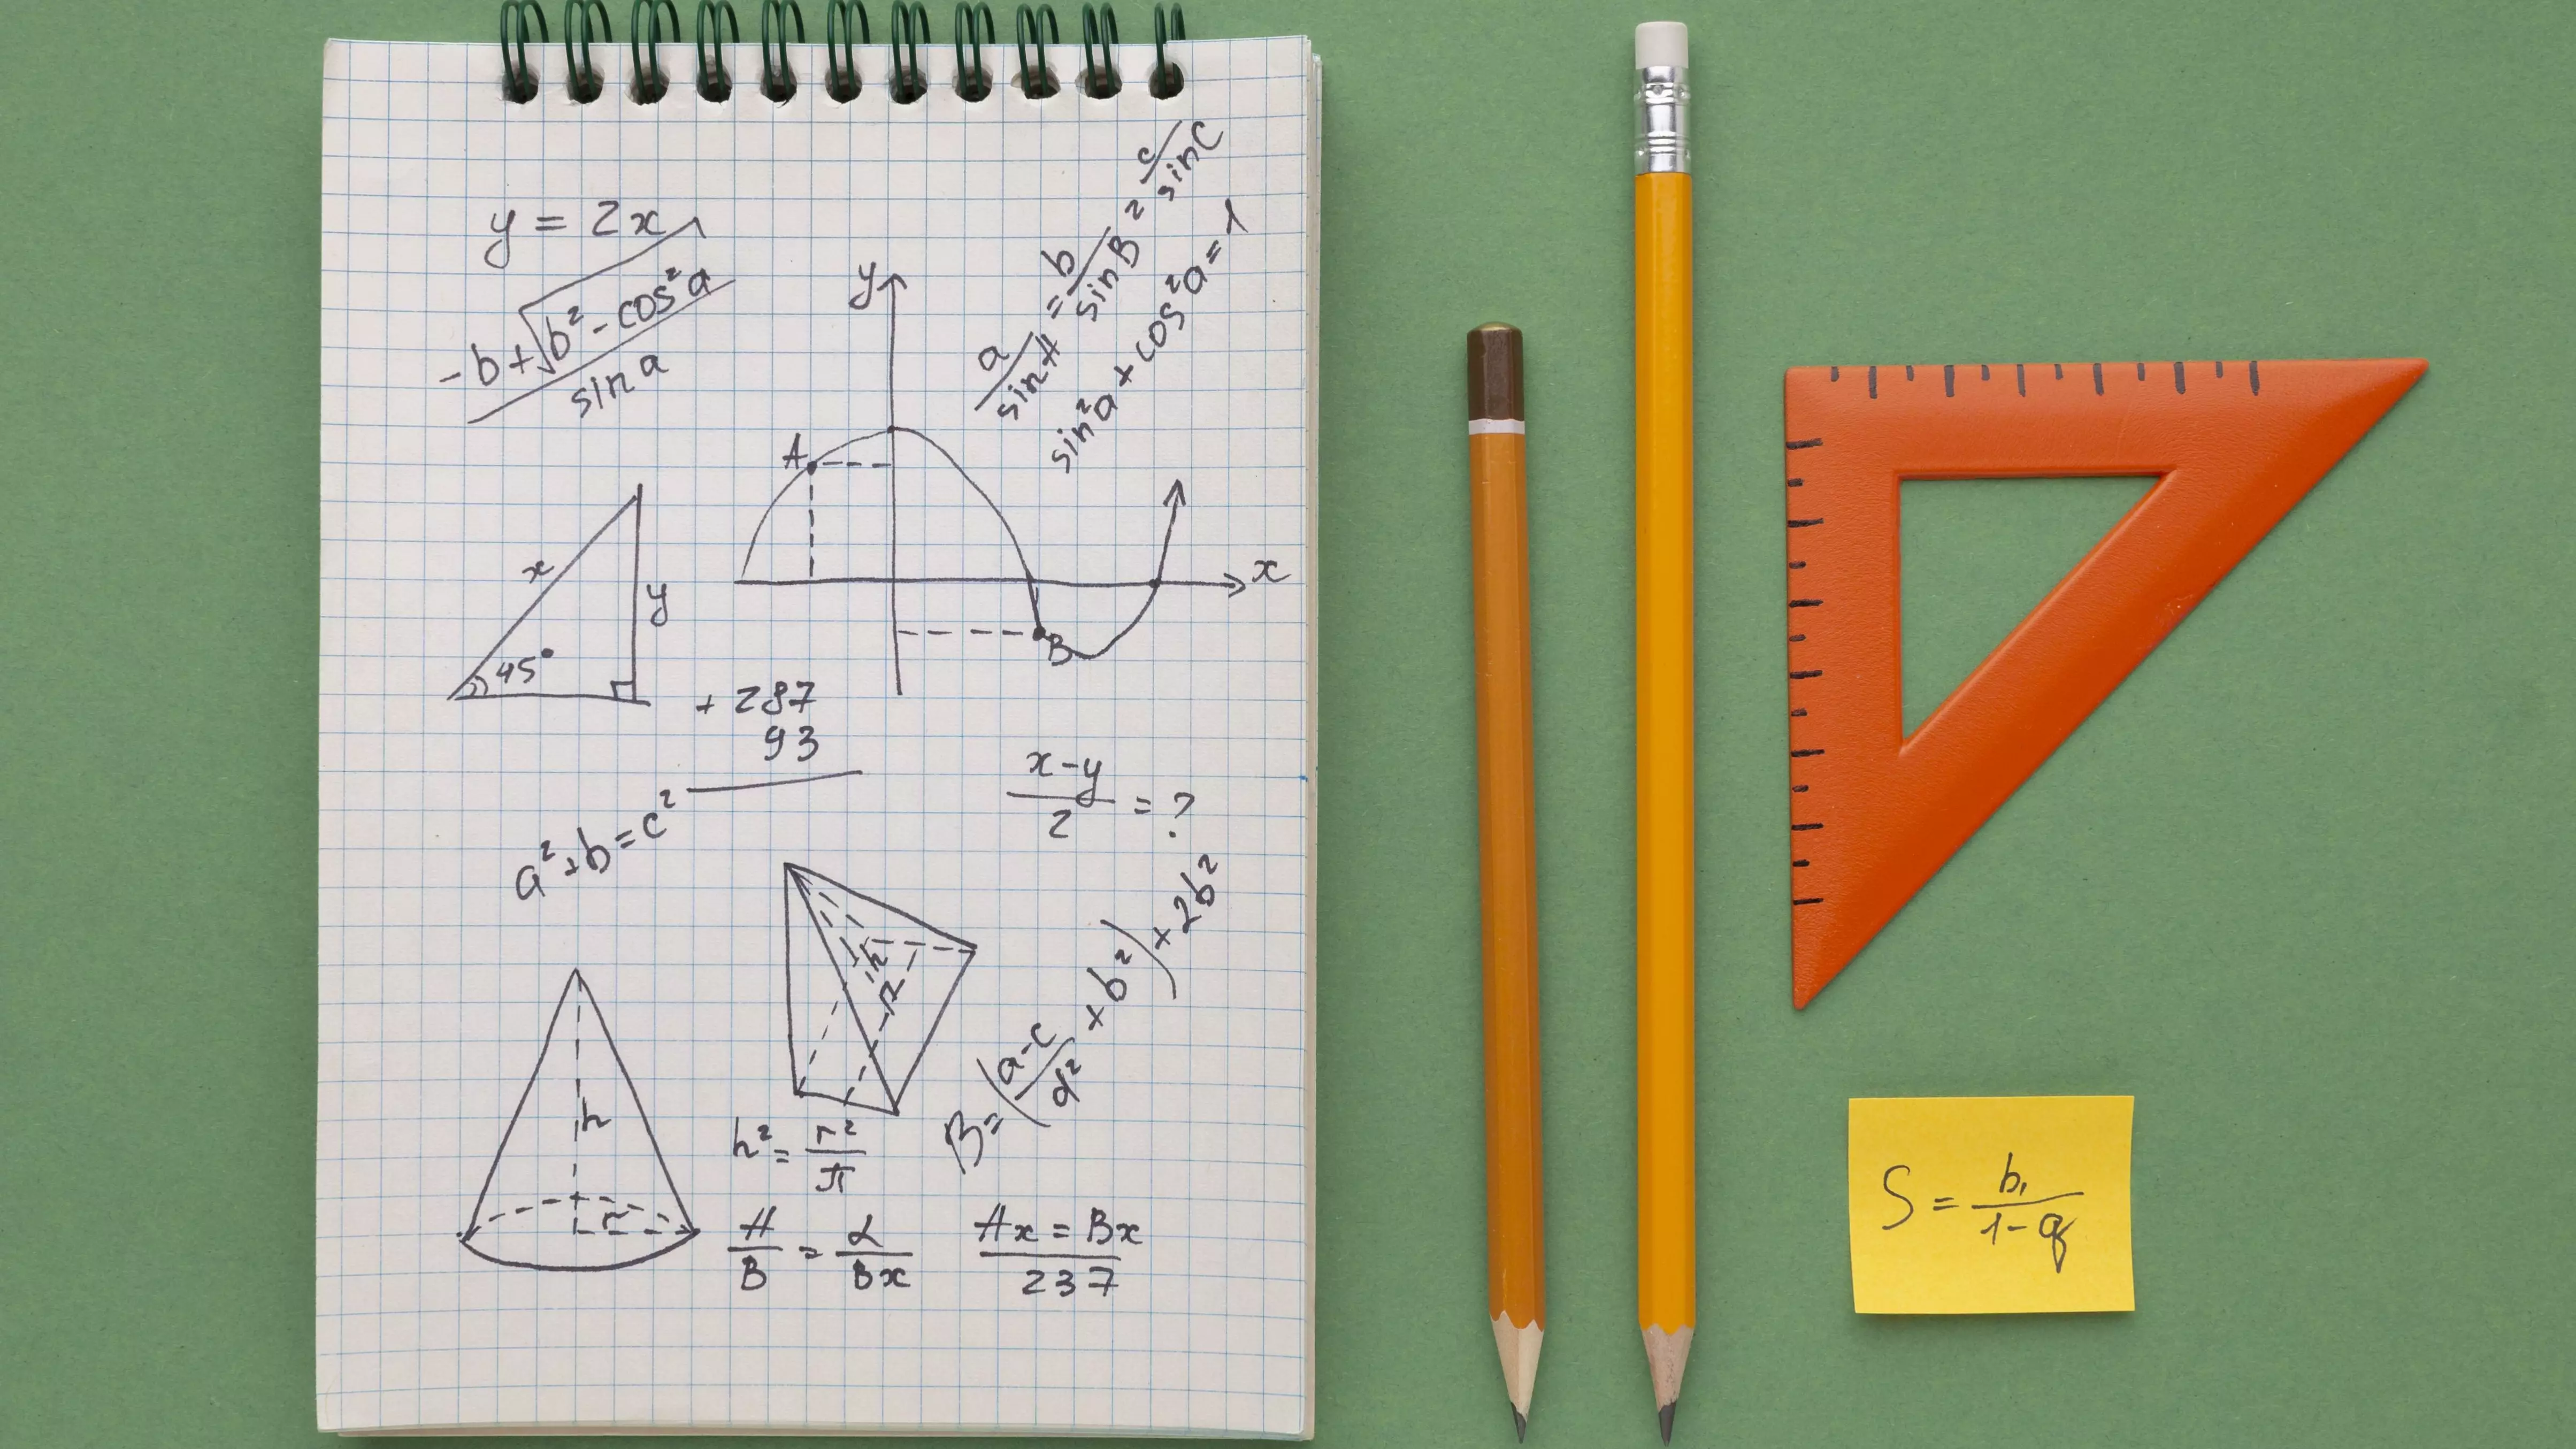 y = 2x
-b+√b²-cos²a
sin a
a/sinA = b/sinB = c/sinC
sin²a + cos²a = 1
y
A
x
B
x
y
45°
+ 287
93
x-y/2 = ?
a²+b=c²
h
R
B=(a-c/d² × b²) × 2b²
h
r
h² = r²/π
A/B = L/Bx
Ax = Bx
237
S = b₁/1-q